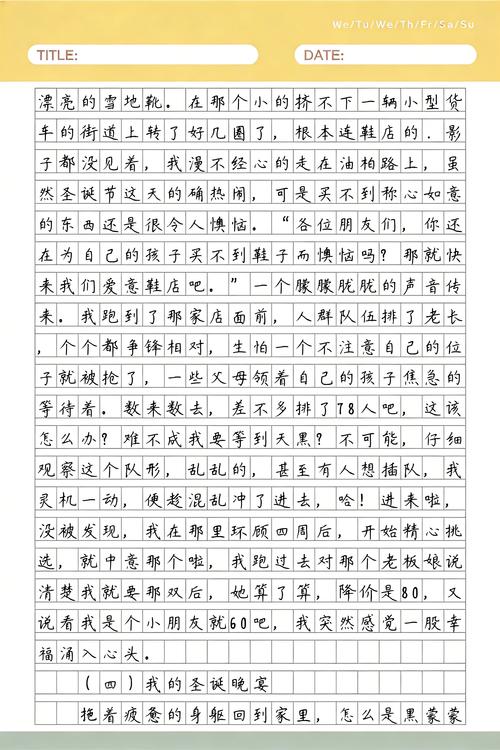 We/Tu/We/Th/Fr/Sa/Su
TITLE:
DATE:
漂亮的雪地靴。在那个小的挤不下一辆小型货
车的街道上转了好几圈了，根本连鞋店的.影
子都没见着，我漫不经心的走在油柏路上，虽
然圣诞节这天的确热闹，可是买不到称心如意
的东西还是很令人懊恼。“各位朋友们，你还
在为自己的孩子买不到鞋子而懊恼吗？那就快
来我们爱意鞋店吧。”一个朦朦胧胧的声音传
来。我跑到了那家店面前，人群队伍排了老长
，个个都争锋相对，生怕一个不注意自己的位
子就被抢了，一些父母领着自己的孩子焦急的
等待着。数来数去，差不多排了78人吧，这该
怎么办？难不成我要等到天黑？不可能，仔细
观察这个队形，乱乱的，甚至有人想插队，我
灵机一动，便趁混乱冲了进去，哈！进来啦，
没被发现，我在那里环顾四周后，开始精心挑
选，就中意那个啦，我跑过去对那个老板娘说
清楚我就要那双后，她算了算，降价是80，又
说看我是个小朋友就60吧，我突然感觉一股幸
福涌入心头。
（四）我的圣诞晚宴
拖着疲惫的身躯回到家里，怎么是黑蒙蒙